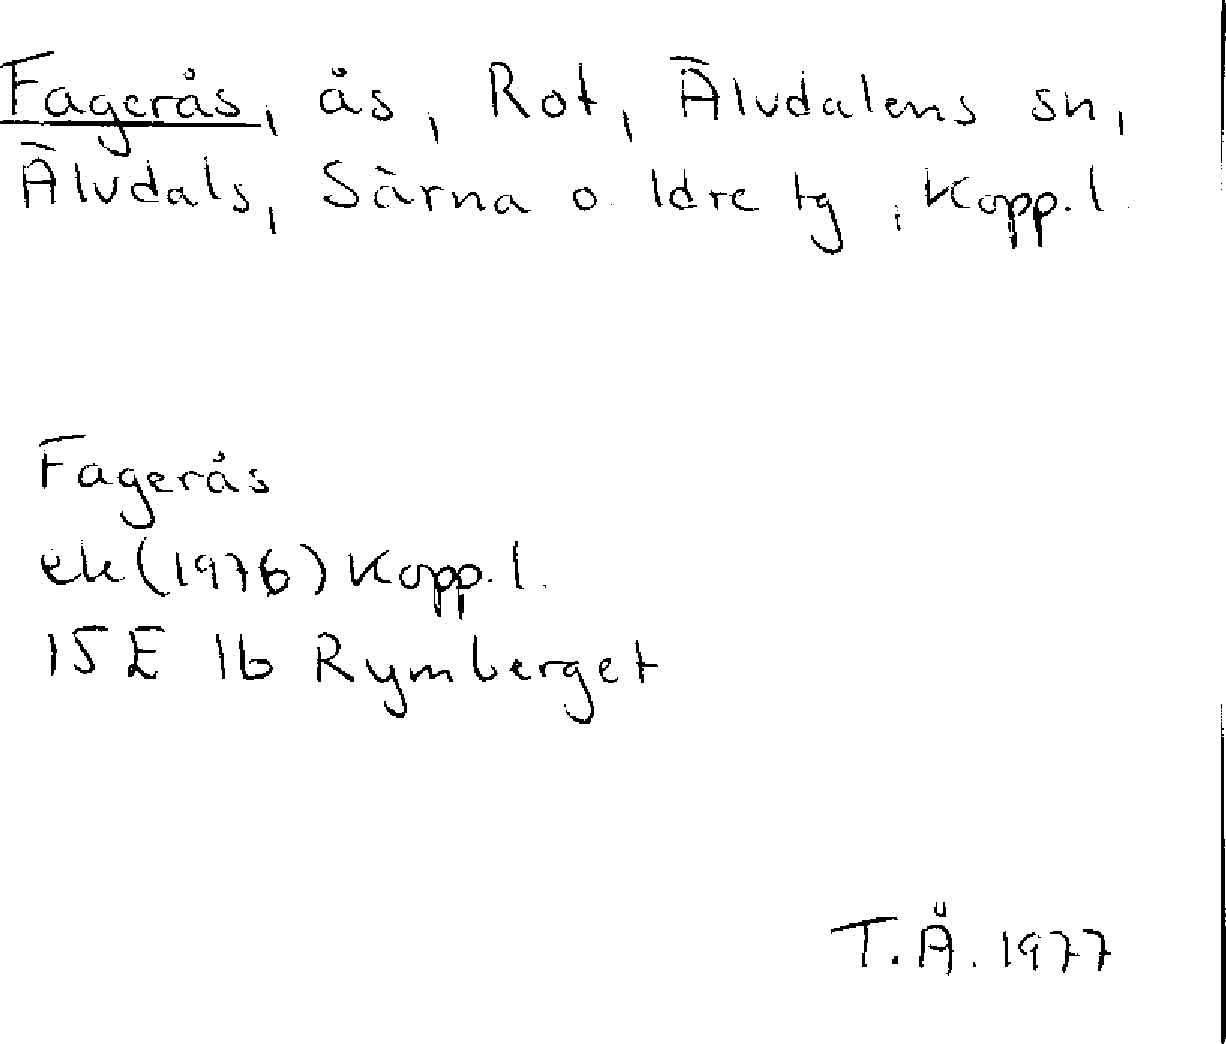 Fagerås, ås, Rot, Älvdalens sn,
Älvdals, Särna o. Idre tg, Kopp. l.
Fagerås
ek (1976) Kopp. l.
15E 1b Rymberget
T.Å. 1977